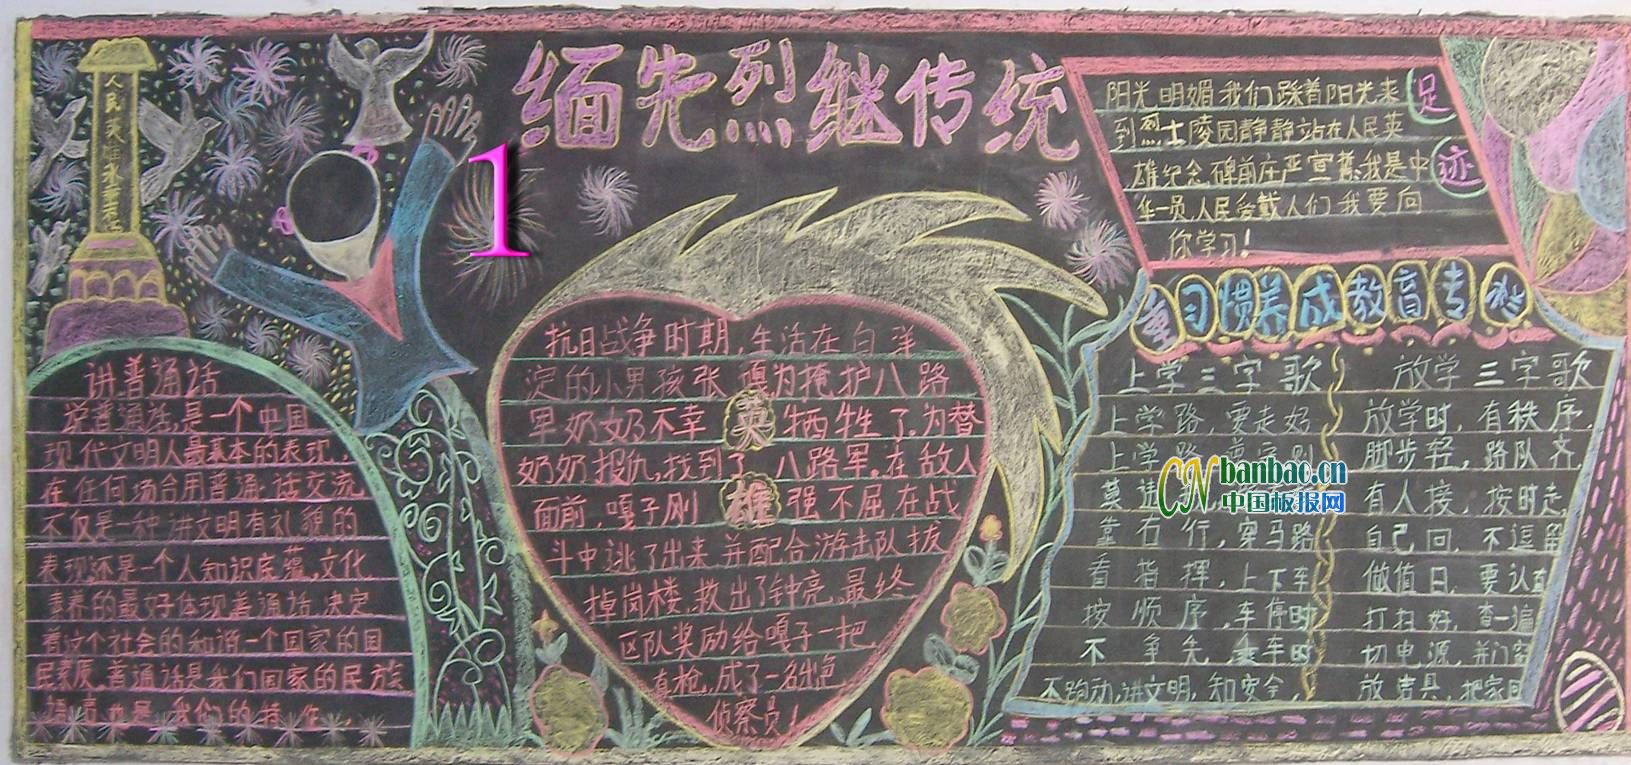 缅先烈继传统
1
人民英雄永垂不朽
讲普通话
说普通话,是一个中国
现代文明人最基本的表现,
在任何场合用普通话交流
不仅是一种讲文明有礼貌的
表现还是一个人知识底蕴,文化
素养的最好体现普通话,决定
着这个社会的和谐一个国家的国
民素质,普通话是我们国家的民族
语言也是我们的
抗日战争时期,生活在白洋
淀的小男孩张嘎,为掩护八路
军奶奶不幸牺牲了.为替
奶奶报仇,找到了八路军.在敌人
面前,嘎子刚强不屈,在战
斗中逃了出来,并配合游击队拔
掉岗楼,救出了钟亮,最终
区队奖励给嘎子一把
真枪,成了一名出色
侦察员!
英雄
足迹
阳光明媚我们踩着阳光来
到烈士陵园静静站在人民英
雄纪念碑前庄严宣誓:我是中
华一员,人民爱戴人们我要向
你学习!
习惯养成教育专栏
上学三字歌
上学路,要走好
上学路
莫
靠右行,穿马路
看指挥,上下车
按顺序,车停时
不争先,乘车时
不跑动,讲文明,知安全,
放学三字歌
放学时,有秩序,
脚步轻,路队齐,
有人接,按时走,
自己回,不逗留
做值日,要认真
打扫好,查一遍
切电源,并门窗
放洁具,把家回
CN banbao.cn
中国板报网